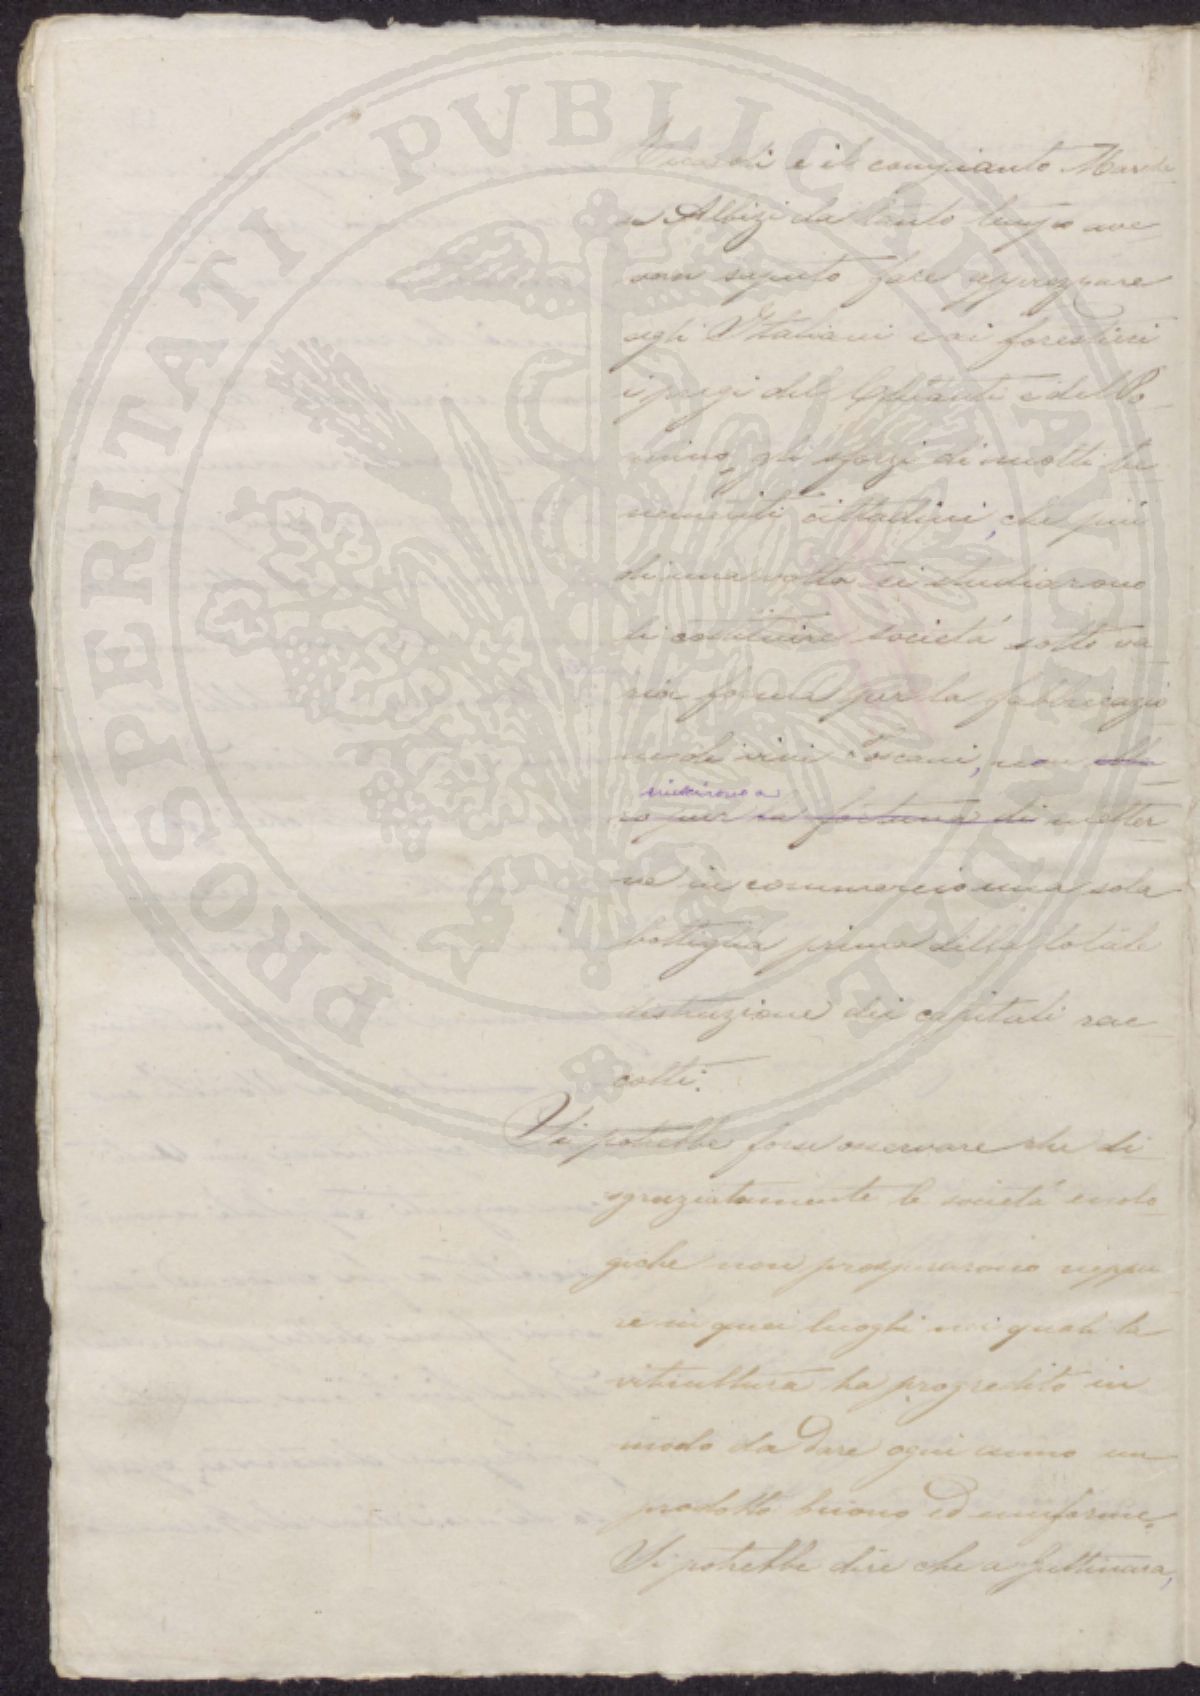 PROSPERITATI PVBLICAE AVGENDAE
Ricasoli e il compianto March.
se Albizi da tanto tempo ave-
vano saputo fare apprezzare
agli Italiani e ai forestieri
i pregi del Chianti e del Po-
mino, gli sforzi di molti be
nemeriti cittadini, che più
di una volta si studiarono
di costituire società sotto va-
ria forma per la fabbricazio
ne di vini Toscani, non ebbe
riuscirono a
ro pur la fortuna di metter
ne in commercio una sola
bottiglia prima della totale
distruzione dei capitali rac-
colti.
Si potrebbe forse osservare che di-
sgraziatamente le società enolo-
giche non prosperarono neppu
re in quei luoghi nei quali la
viticultura ha progredito in
modo da dare ogni anno un
prodotto buono ed uniforme.
Si potrebbe dire che a Gattinara,